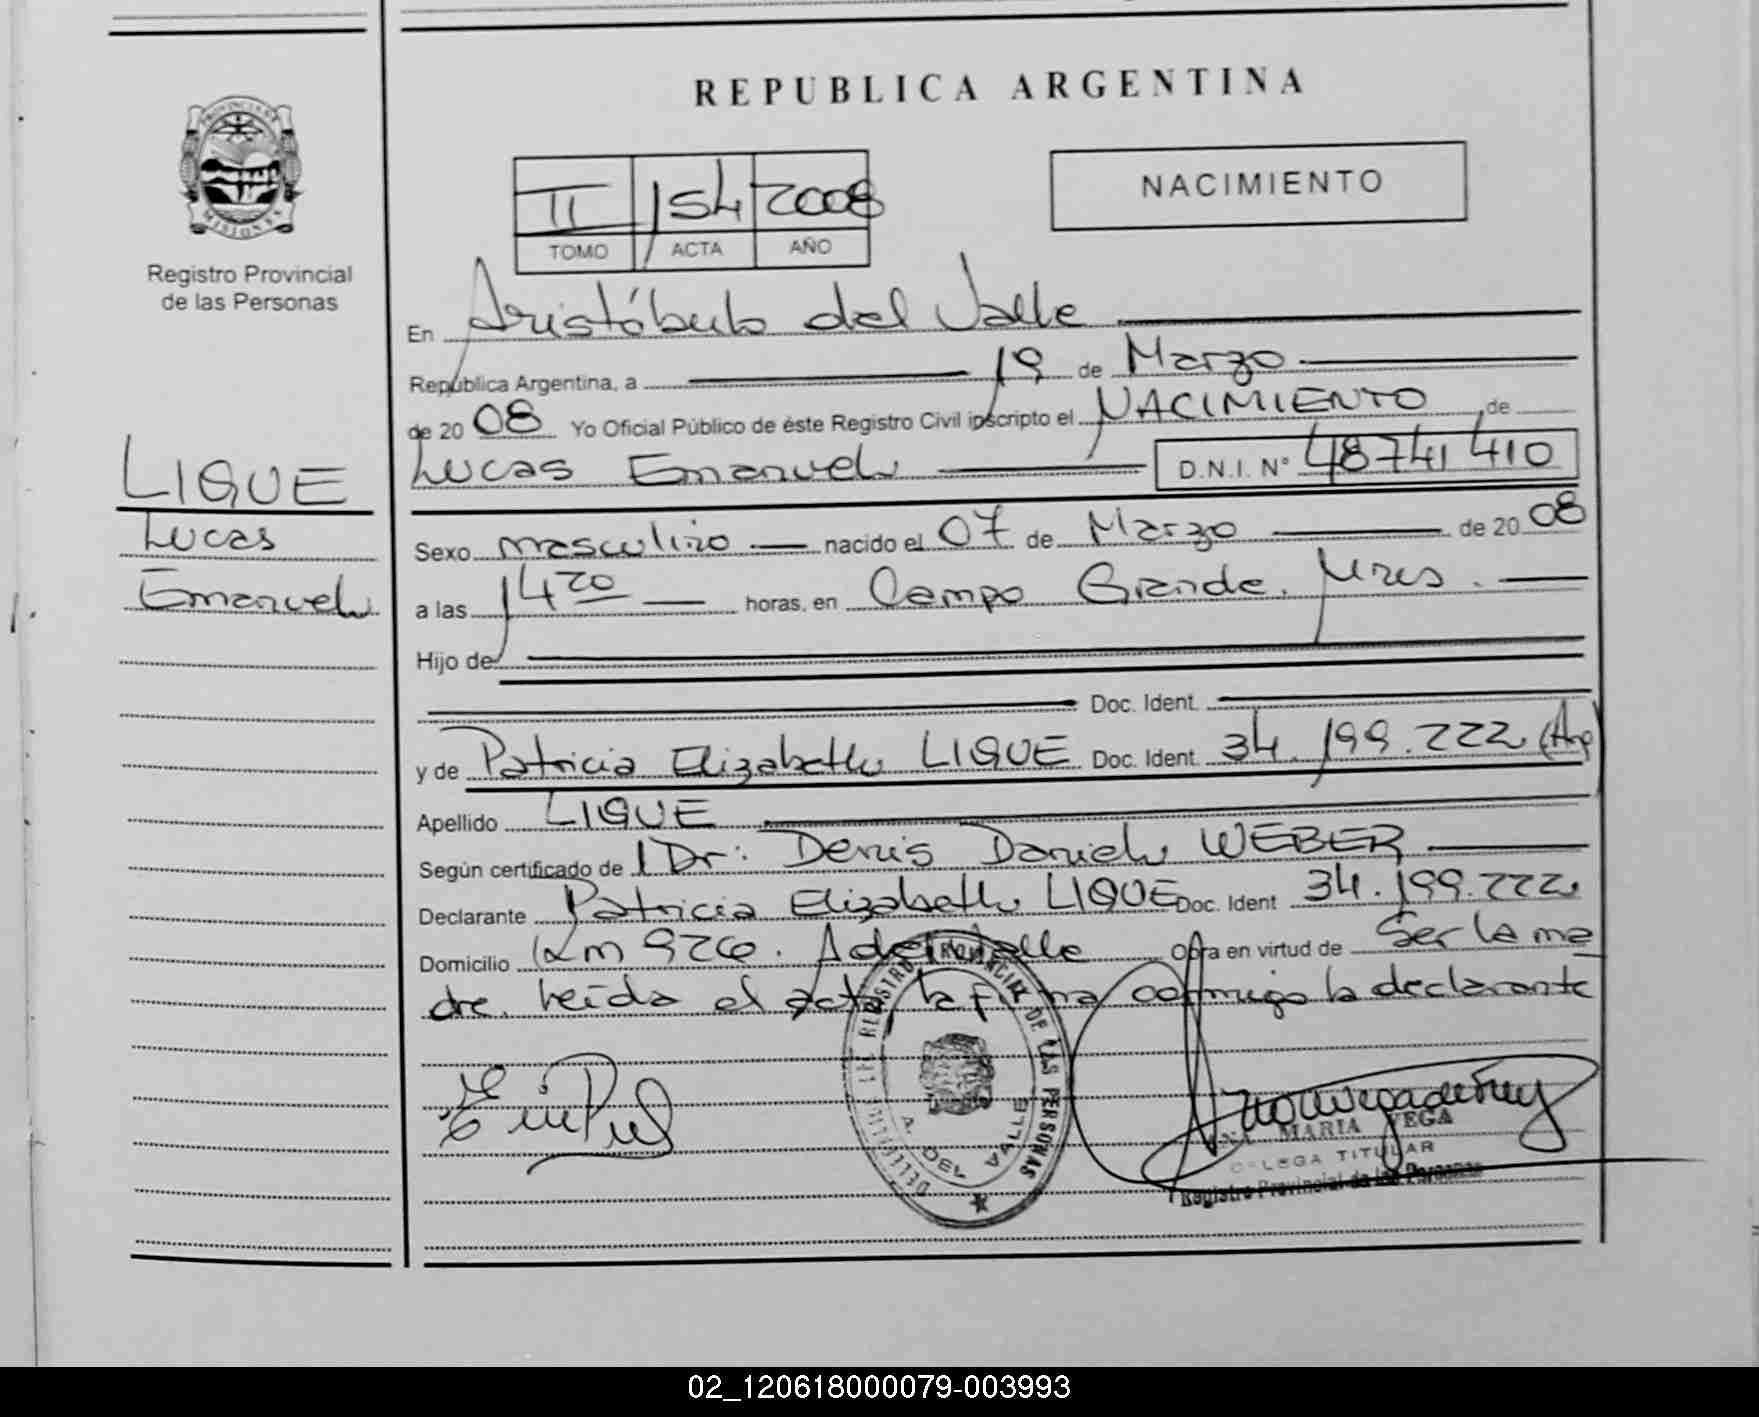 REPUBLICA ARGENTINA
PROVINCIA DE
MISIONES
Registro Provincial
de las Personas
NACIMIENTO
II 154 2008
TOMO ACTA AÑO
En Aristóbulo del Valle
República Argentina, a 19 de Marzo
de 2008 Yo Oficial Público de éste Registro Civil inscripto el NACIMIENTO de
Lucas Emanuel D.N.I. Nº 48741410
LIQUE
Lucas
Emanuel
Sexo masculino nacido el 07 de Marzo de 2008
a las 1420 horas, en Campo Grande. Mnes.
Hijo de
Doc. Ident.
y de Patricia Elizabeth LIQUE Doc. Ident. 34.199.222 (Arg)
Apellido LIQUE
Según certificado de Dr: Denis Daniel WEBER
Declarante Patricia Elizabeth LIQUE Doc. Ident 34.199.222
Domicilio Km 926. A del Valle Obra en virtud de Ser la ma
dre. Leída el acta, la firma conmigo la declarante
REGISTRO PROVINCIAL DE LAS PERSONAS
A. DEL VALLE
ANA MARIA VEGA
TITULAR
Registro Provincial de las Personas
02_120618000079-003993